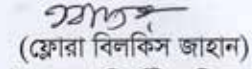 (ফ্লোরা বিলকিস জাহান)